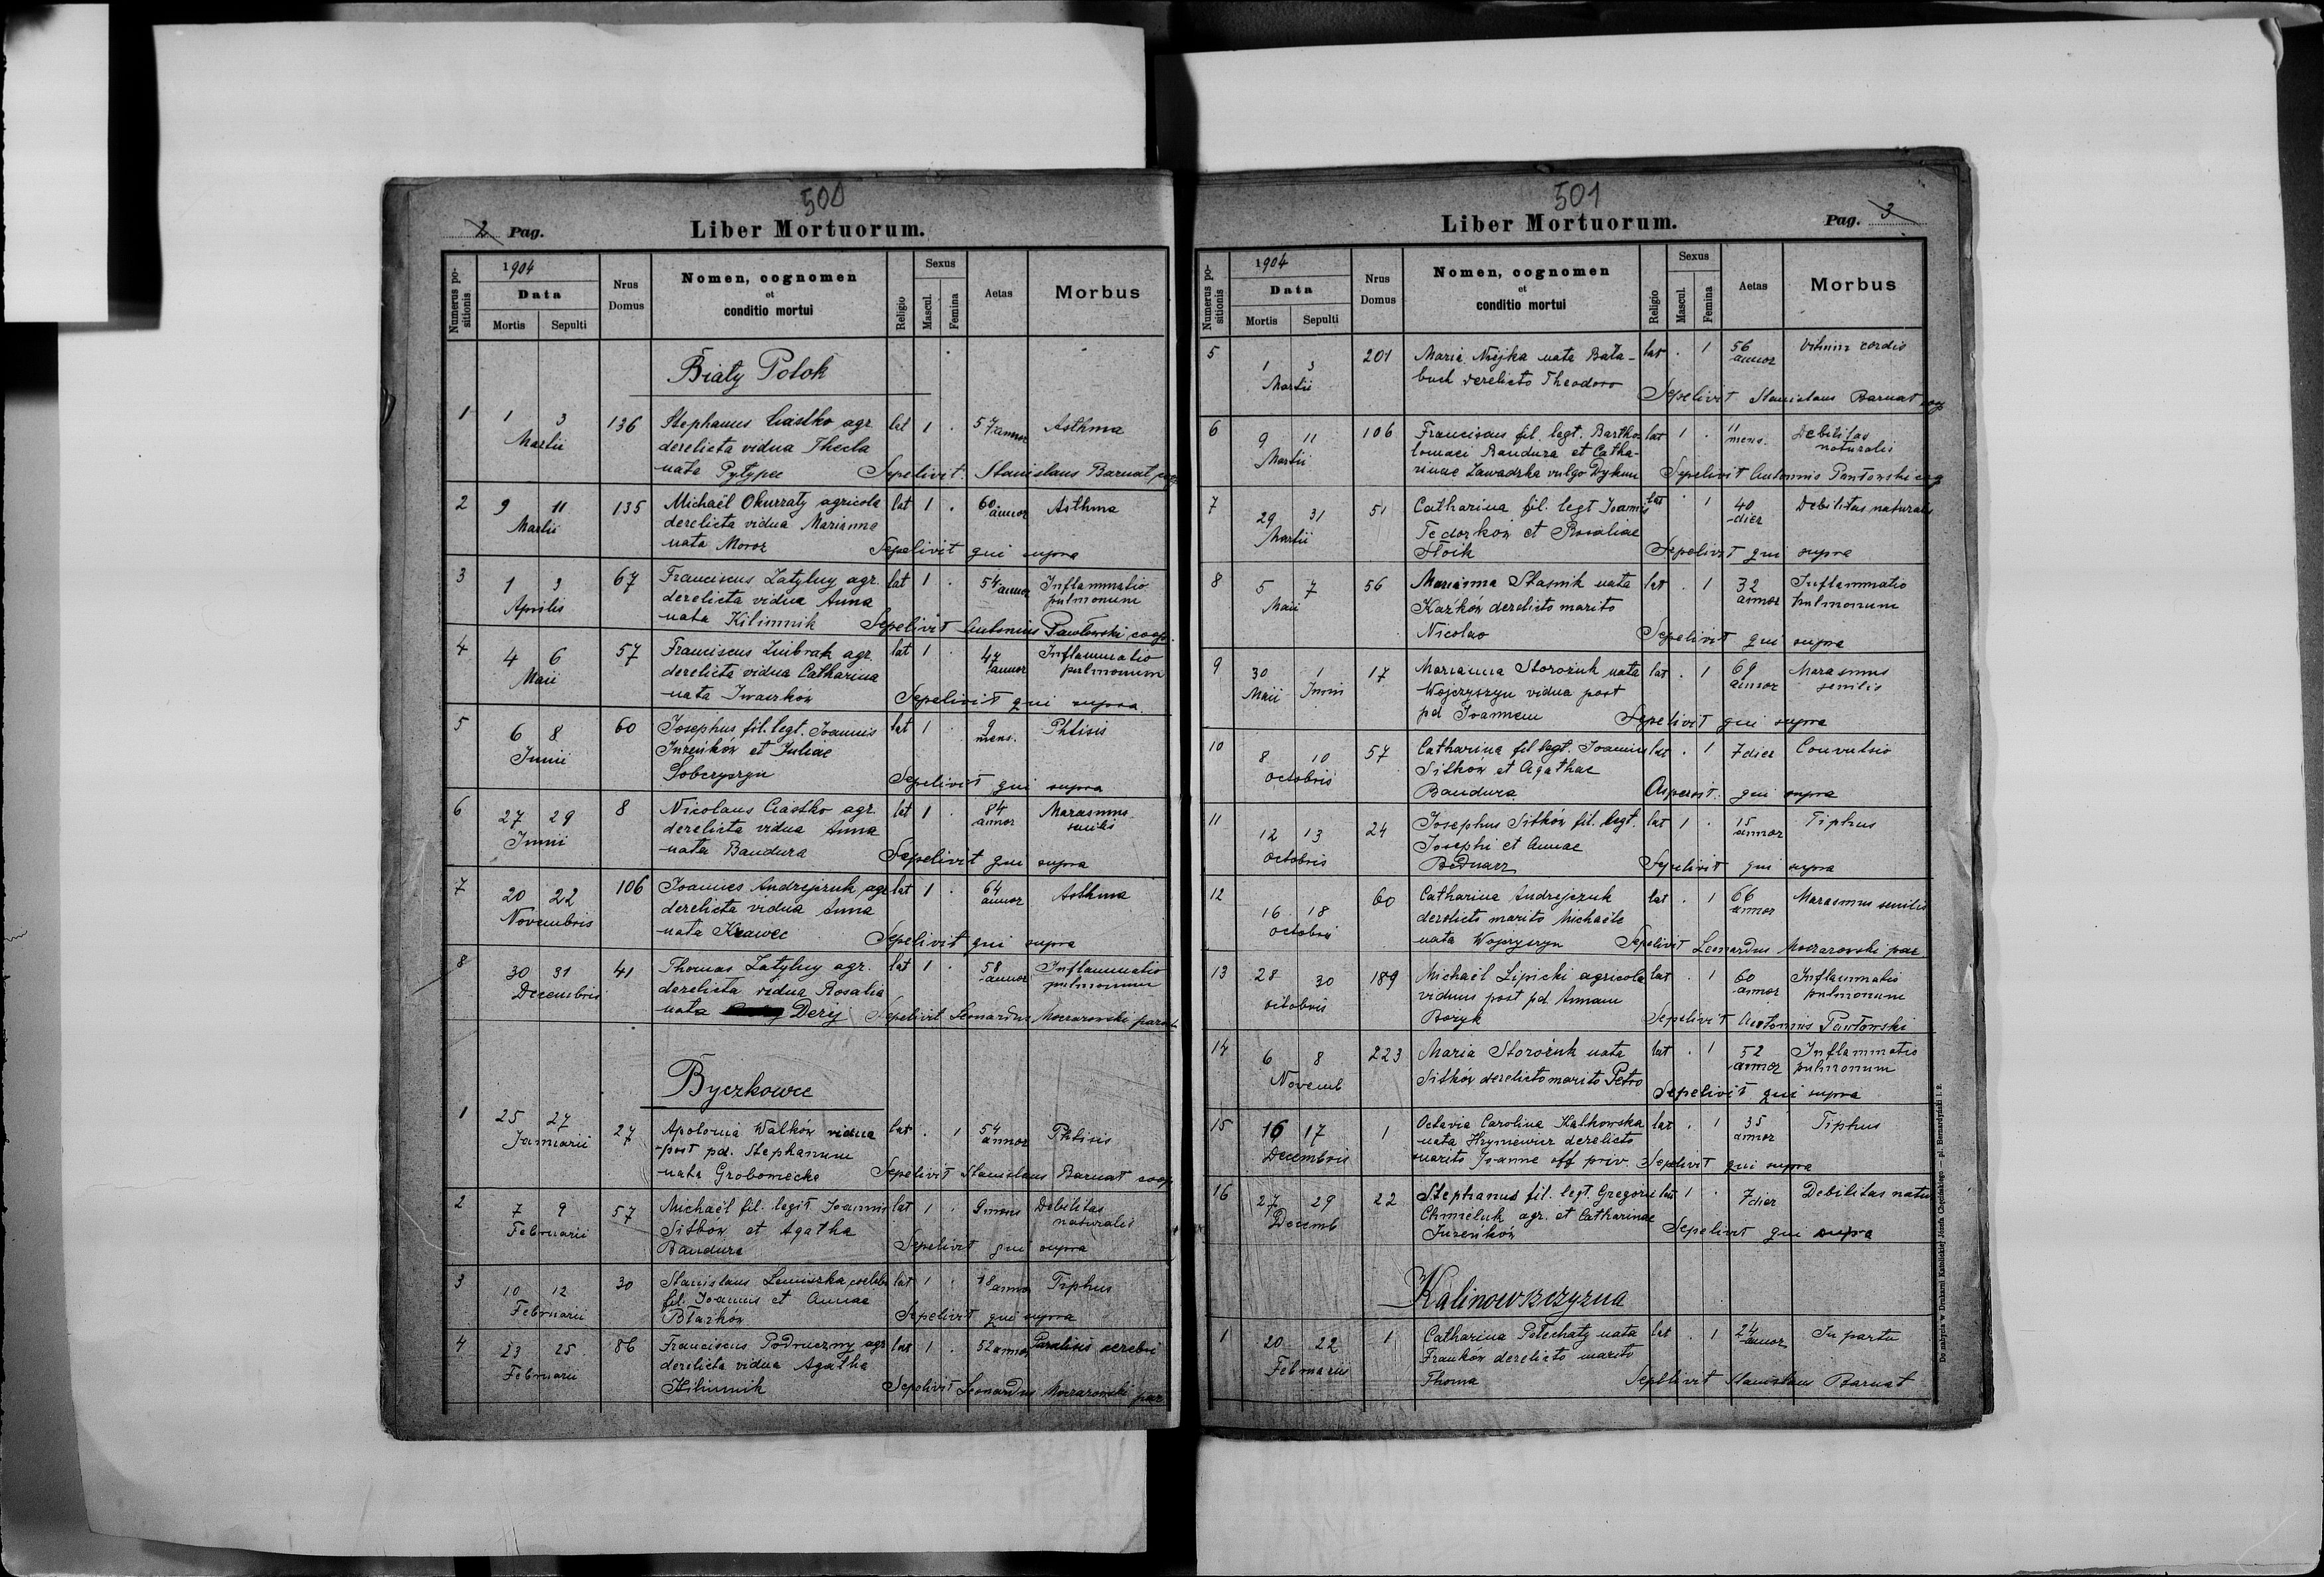 500
2 Pag.
Liber Mortuorum.
Numerus positionis
1904
Data
Mortis Sepulti
Nrus Domus
Nomen, cognomen
et
conditio mortui
Religio
Sexus
Mascul. Femina
Aetas
Morbus
Biały Potok
1 1 3 136 Stephanus Ciastko agr lat 1 . 57 annor Asthma
Martii derelicta vidua Thecla
nata Pytypec Sepelivit Stanislaus Barnat
2 9 11 135 Michaël Okurzaty agricola lat 1 . 60 annor Asthma
Martii derelicta vidua Marianna
nata Moroz Sepelivit qui supra
3 1 3 67 Franciscus Zatylny agr. lat 1 . 54 annor Inflammatio
Aprilis derelicta vidua Anna pulmonum
nata Kilimnik Sepelivit Antonius Pawłowski coop.
4 4 6 57 Franciscus Zinbrak agr. lat 1 . 47 annor Inflammatio
Maii derelicta vidua Catharina pulmonum
nata Iwaszków Sepelivit qui supra
5 6 8 60 Josephus fil. legt. Joannis lat 1 9 mens. Phtisis
Junii Jureńków et Juliae
Sobczyszyn Sepelivit qui supra
6 27 29 8 Nicolaus Ciastko agr. lat 1 . 84 annor Marasmus
Junii derelicta vidua Anna senilis
nata Bandura Sepelivit qui supra
7 20 22 106 Joannes Andrejczuk agr lat 1 . 64 annor Asthma
Novembris derelicta vidua Anna
nata Krawec Sepelivit qui supra
8 30 31 41 Thomas Zatylny agr. lat 1 . 58 annor Inflammatio
Decembris derelicta vidua Rosalia pulmonum
nata Dery Sepelivit Leonardus Moczarowski paroch
Byczkowce
1 25 27 27 Apolonia Walków vidua lat . 1 54 annor Phtisis
Januarii post pd. Stephanum
nata Grobomecka Sepelivit Stanislaus Barnat coop
2 7 9 57 Michaël fil. legit Joannis lat 1 . 9 mens Debilitas
Februarii Sitków et Agatha naturalis
Bandura Sepelivit qui supra
3 10 12 30 Stanislaus Lemiszka coelebs lat 1 . 18 annor Tiphus
Februarii fil. Joannis et Annae
Błażków Sepelivit qui supra
4 23 25 86 Franciscus Podruczny agr lat 1 . 52 annor Paralisis cerebri
Februarii derelicta vidua Agatha
Kilimnik Sepelivit Leonardus Moczarowski par
501
Liber Mortuorum.
Pag. 3
Numerus positionis
1904
Data
Mortis Sepulti
Nrus Domus
Nomen, cognomen
et
conditio mortui
Religio
Sexus
Mascul. Femina
Aetas
Morbus
5 1 3 201 Maria Niejka nata Bała- lat . 1 56 annor Vitium cordis
Martii buch derelicto Theodoro
Sepelivit Stanislaus Barnat coop
6 9 11 106 Franciscus fil. legt. Bartho lat 1 . 11 mens. Debilitas
Martii lomaei Bandura et Catha- naturalis
rinae Zawadzka vulgo Dykun Sepelivit Antonius Pawłowski
7 29 31 51 Catharina fil. legt Joannis lat . 1 40 dier Debilitas naturalis
Martii Fedorków et Rosaliae
Słoik Sepelivit qui supra
8 5 7 56 Marianna Stasnik nata lat . 1 32 annor Inflammatio
Maii Kaźków derelicto marito pulmonum
Nicolao Sepelivit qui supra
9 30 1 17 Marianna Storożuk nata lat . 1 69 annor Marasmus
Maii Junii Wojczyszyn vidua post senilis
pd Joannem Sepelivit qui supra
10 8 10 57 Catharina fil legt. Joannis lat . 1 7 dier Convulsio
Octobris Sitków et Agathae
Bandura Aspersit qui supra
11 12 13 24 Josephus Sitków fil. legt. lat 1 . 15 annor Tiphus
Octobris Josephi et Annae
Bednarz Sepelivit qui supra
12 16 18 60 Catharina Andrejczuk lat . 1 66 annor Marasmus senilis
Octobris derelicto marito Michaële
nata Wojczyszyn Sepelivit Leonardus Moczarowski par
13 28 30 189 Michaël Lipicki agricola lat . 1 60 annor Inflammatio
octobris viduus post pd Annam pulmonum
Boryk Sepelivit Antonius Pawłowski
14 6 8 223 Maria Storożuk nata lat . 1 52 annor Inflammatio
Novemb Sitków derelicto marito Petro pulmonum
Sepelivit qui supra
15 16 17 1 Octavia Carolina Kalkowska lat . 1 35 annor Tiphus
Decembris nata Hrymewicz derelicto
marito Joanne off priv Sepelivit qui supra
16 27 29 22 Stephanus fil. legt. Gregorii lat 1 . 7 dier Debilitas natu
Decemb Chmieluk agr. et Catharinae
Jureńków Sepelivit qui supra
Kalinowszczyzna
1 20 22 1 Catharina Petechaty nata lat . 1 24 annor In partu
Februarii Franków derelicto marito
Thoma Sepelivit Stanislaus Barnat
Do nabycia w Drukarni Katolickiej Józefa Chęcińskiego — pl. Bernardyński l. 2.